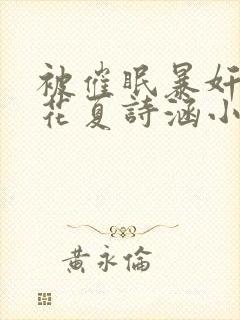 被催眠暴奸
花夏詩涵小
黃永倫